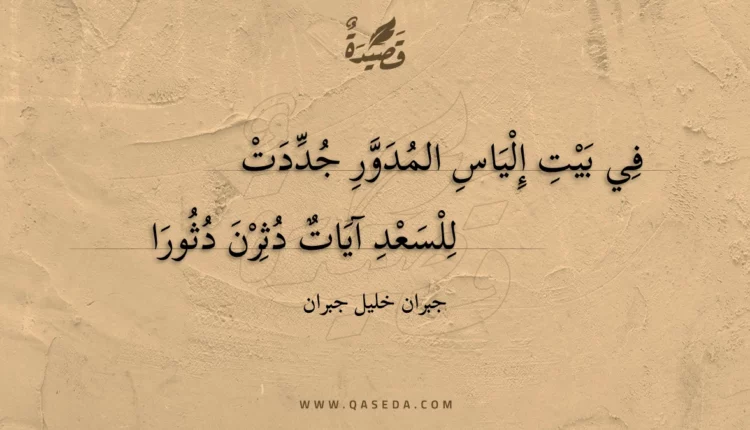 قَصِيدَةٌ
فِي بَيْتِ إِلْيَاسِ المُدَوَّرِ جُدِّدَتْ
لِلْسَعْدِ آيَاتٌ دُثِرْنَ دُثُورَا
جبران خليل جبران
WWW.QASEDA.COM